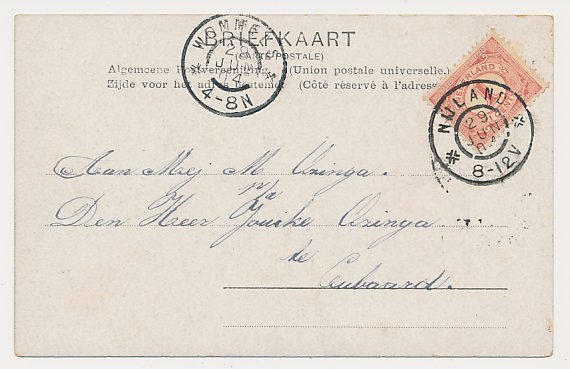 BRIEFKAART
(CARTE POSTALE)
Algemeene Postvereeniging. (Union postale universelle.)
Zijde voor het adres bestemd. (Côté réservé à l'adresse
WOMMELS
29
JUN
04
4-8N
NIJLAND
29
JUN
04
8-12V
Aan Mej M Osinga
p/a
Den Heer Jouike Osinga
te
Cubaard.